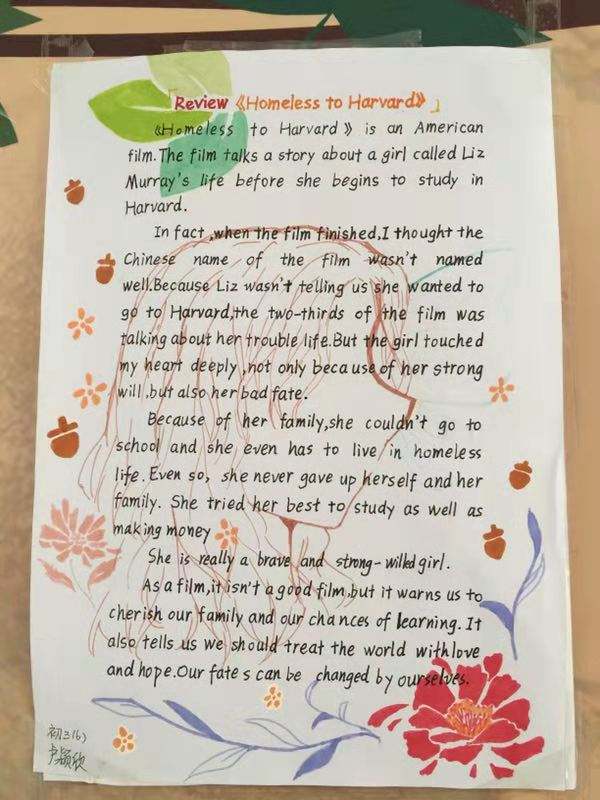 「Review《Homeless to Harvard》」
《Homeless to Harvard》 is an American
film.The film talks a story about a girl called Liz
Murray's life before she begins to study in
Harvard.
In fact ,when the film finished,I thought the
Chinese name of the film wasn't named
well.Because Liz wasn't telling us she wanted to
go to Harvard,the two-thirds of the film was
talking about her trouble life.But the girl touched
my heart deeply ,not only because of her strong
will ,but also her bad fate.
Because of her family,she couldn't go to
school and she even has to live in homeless
life. Even so, she never gave up herself and her
family. She tried her best to study as well as
making money
She is really a brave and strong-willed girl.
As a film,it isn't a good film,but it warns us to
cherish our family and our chances of learning. It
also tells us we should treat the world with love
and hope.Our fate s can be changed by ourselves.
初三(6)
卢颖欣